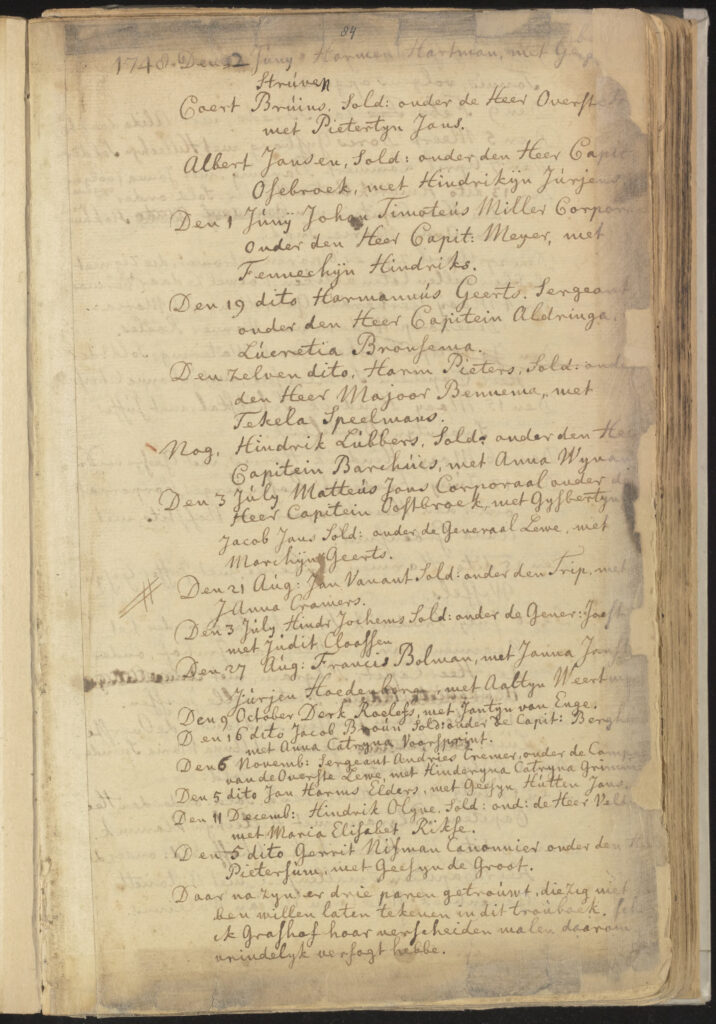 84
1748. Den 2 Júny Harmen Hartman, met Gee
Strúven
Coert Brúins, Sold: onder de Heer Overst
met Pietertyn Jans.
Albert Jansen, Sold: onder den Heer Capit
Osebroek, met Hindrikijn Júrjens
Den 1 Júnij Johan Timoteús Miller Corpor
onder den Heer Capit: Meyer, met
Fennechijn Hindriks.
Den 19 dito Harmannús Geerts. Sergeant
onder den Heer Capitein Aldringa,
Lúcretia Bronsema.
Den zelven dito, Harm Pieters, Sold: onde
den Heer Majoor Bennema, met
Tekela Speelmans.
Nog, Hindrik Lúbbers, Sold: onder den Hee
Capitein Barchúis, met Anna Wyna
Den 3 Júly Matteús Jans Corporaal onder d
Heer Capitein Oostbroek, met Gysbertyn
Jacob Jans Sold: onder de Generaal Lewe, met
Marchijn Geerts.
Den 21 Aúg: Jan Vanant Sold: onder den Trip, met
JAnna Cramers.
Den 3 Júly Hindr Jochems Sold: onder de Gener: Joost
met Júdit Claassen
Den 27 Aúg: Francis Bolman, met Janna Jans
Júrjen Hoedenborg, met Aaltyn Weert
Den 9 October Derk Roelefs, met Jantyn van Enge.
Den 16 dito Jacob Broún Sold: onder de Capit: Bergh
met Anna Catryna Voorsprint.
Den 6 Novemb: Sergeant Andries Cremer, onder de Comp
van de Overste Lewe, met Hinderyna Catryna Grim
Den 5 dito Jan Harms Elders, met Geesyn Hútten Jans.
Den 11 Decemb: Hindrik Olyne, Sold: ond: de Heer Vel
met Maria Elisabet Rikse.
Den 5 dito Gerrit Nisman Canonnier onder den
Pietersúm, met Geesyn de Groot.
Daar na zyn er drie paren getroúwt, die zig niet
ben willen laten tekenen in dit troúboek.
ik Grashof haar verscheiden malen daarom
vrindelyk versogt hebbe.